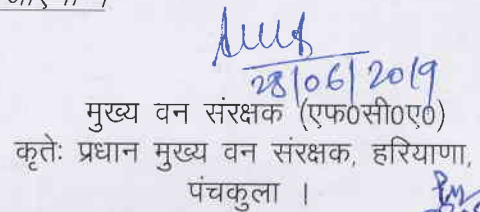 28/06/2019
मुख्य वन संरक्षक (एफ0सी0ए0)
कृतेः प्रधान मुख्य वन संरक्षक, हरियाणा,
पंचकुला ।